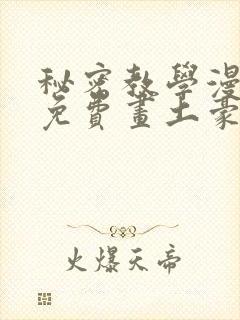 秘密教學漫
免費畫土豪
火爆天帝